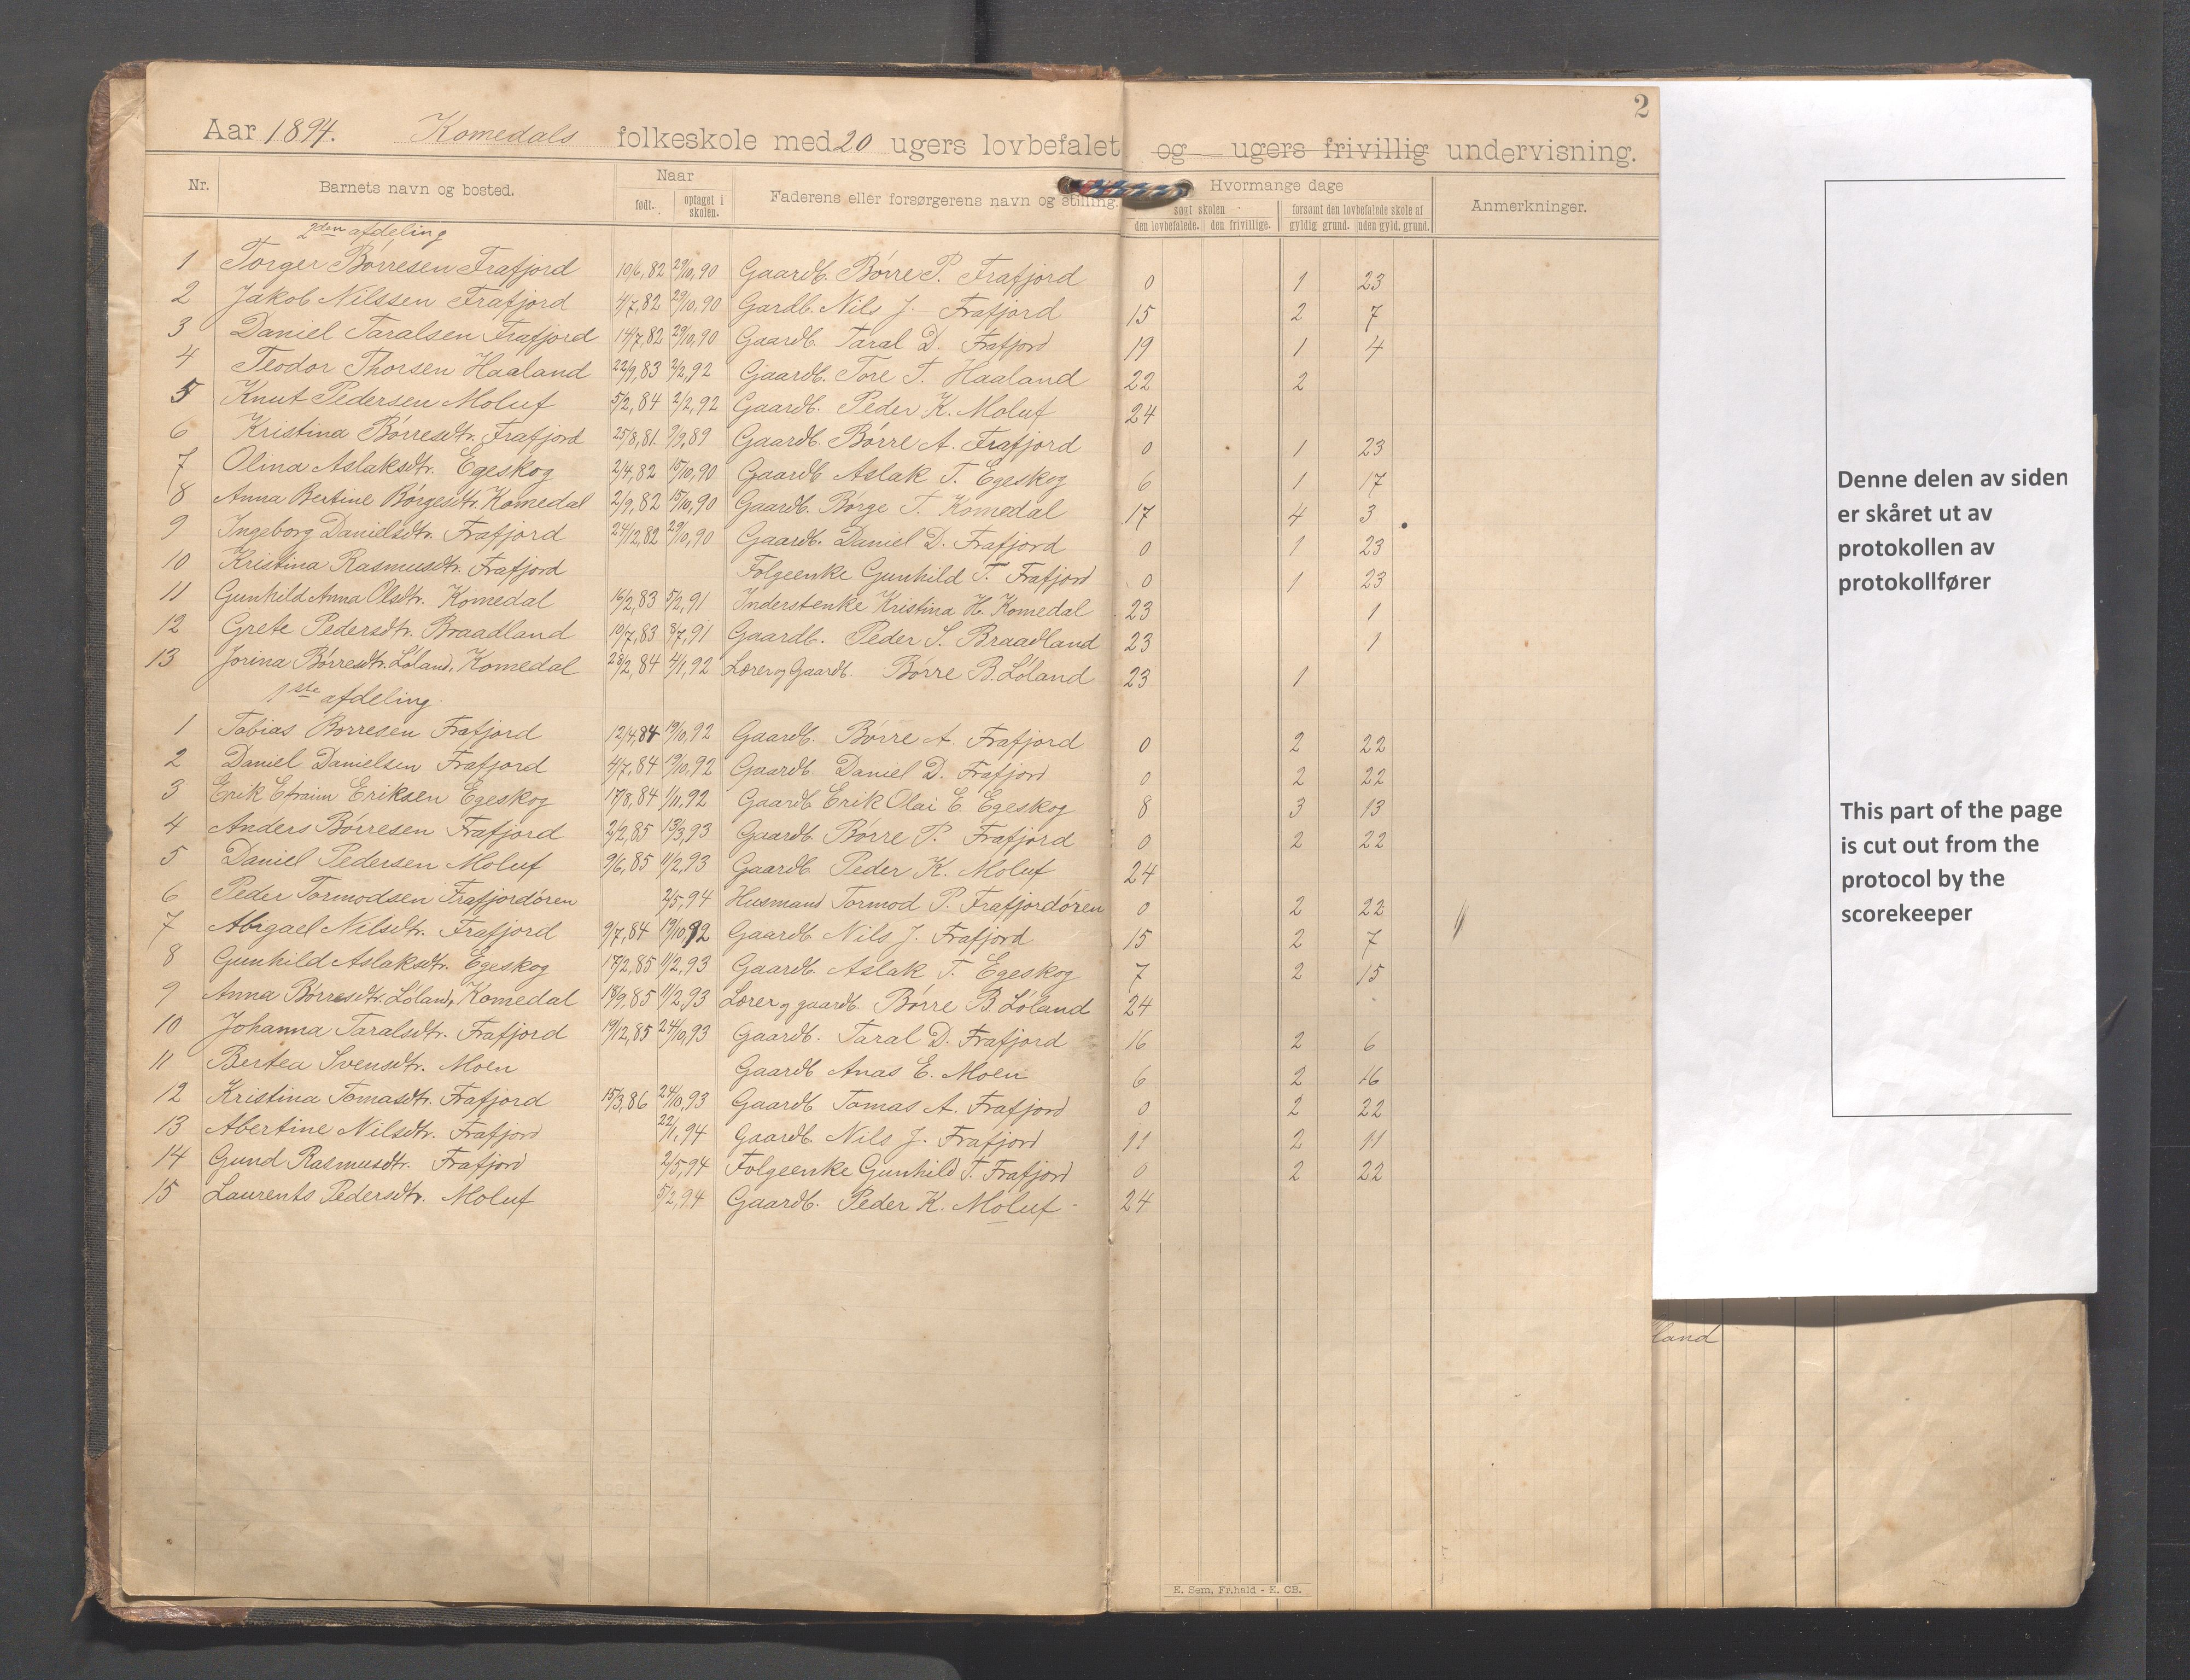 2
Aar 1894. Komedals folkeskole med 20 ugers lovbefalet og ugers frivillig undervisning.
Nr. Barnets navn og bosted. Naar Faderens eller forsørgerens navn og stilling. Hvormange dage Anmerkninger.
født. optaget i skolen. søgt skolen forsømt den lovbefalede skole af
den lovbefalede. den frivillige. gyldig grund. uden gyld. grund.
2den afdeling
1 Torger Børresen Frafjord 10/6,82 29/10,90 Gaardb. Børre P. Frafjord 0 1 23
2 Jakob Nilssen Frafjord 4/7,82 29/10,90 Gardb. Nils J. Frafjord 15 2 7
3 Daniel Taralsen Frafjord 14/7,82 29/10,90 Gaardb. Taral D. Frafjord 19 1 4
4 Teodor Thorsen Haaland 22/9,83 2/2,92 Gjaardb. Tore T. Haaland 22 2
5 Knut Pedersen Moluf 5/2,84 2/2,92 Gaardb. Peder K. Moluf 24
6 Kristina Børresdtr. Frafjord 25/8,81 9/9,89 Gaardb. Børre A. Frafjord 0 1 23
7 Olina Aslaksdtr. Egeskog 2/4,82 15/10,90 Gaardb Aslak T. Egeskog 6 1 17
8 Anna Bertine Børgesdtr. Komedal 2/9,82 15/10,90 Gaardb. Børge T. Komedal 17 4 3
9 Ingeborg Danielsdtr. Frafjord 24/12,82 29/10,90 Gaardb. Daniel D. Frafjord 0 1 23
10 Kristina Rasmusdtr. Frafjord Folgeenke Gunhild T. Frafjord 0 1 23
11 Gunhild Anna Olsdtr. Komedal 16/2,83 5/2,91 Inderstenke Kristina H. Komedal 23 1
12 Grete Pedersdtr. Braadland 10/7,83 8/7,91 Gaardb. Peder S. Braadland 23 1
13 Jorina Børresdtr. Løland, Komedal 28/2,84 4/1,92 Lærer og Gaardb. Børre B. Løland 23 1
1ste afdeling.
1 Tobias Børresen Frafjord 12/4,84 19/10,92 Gaardb. Børre A. Frafjord 0 2 22
2 Daniel Danielsen Frafjord 4/7,84 19/10,92 Gaardb. Daniel D. Frafjord 0 2 22
3 Erik Efraim Eriksen Egeskog 17/8,84 1/11,92 Gaardb Erik Olai E. Egeskog 8 3 13
4 Anders Børresen Frafjord 2/2,85 13/3,93 Gaardb. Børre P. Frafjord 0 2 22
5 Daniel Pedersen Moluf 9/6,85 11/2,93 Gaardb Peder K. Moluf 24
6 Peder Tormodsen Frafjordøren 2/5,94 Husmand Tormod P. Frafjordøren 0 2 22
7 Abigael Nilsdtr. Frafjord 9/7,84 19/10,92 Gaardb Nils J. Frafjord 15 2 7
8 Gunhild Aslaksdtr. Egeskog 17/2,85 11/2,93 Gaardb. Aslak T. Egeskog 7 2 15
9 Anna Børresdtr. Løland, Komedal 18/9,85 11/2,93 Lærer og gaardb. Børre B. Løland 24
10 Johanna Taralsdtr. Frafjord 19/12,85 24/10,93 Gaardb. Taral D. Frafjord 16 2 6
11 Bertea Svensdtr. Moen Gaardb Anas E. Moen 6 2 16
12 Kristina Tomasdtr. Frafjord 15/3,86 24/10,93 Gaardb Tomas A. Frafjord 0 2 22
13 Abertine Nilsdtr. Frafjord 22/1,94 Gaardb. Nils J. Frafjord 11 2 11
14 Gund Rasmusdtr. Frafjord 2/5,94 Folgeenke Gunhild T. Frafjord 0 2 22
15 Laurents Pedersdtr. Moluf 5/2,94 Gaardb. Peder K. Moluf 24
E. Sem, Fr.hald - K. CB.
Denne delen av siden
er skåret ut av
protokollen av
protokollfører
This part of the page
is cut out from the
protocol by the
scorekeeper
land